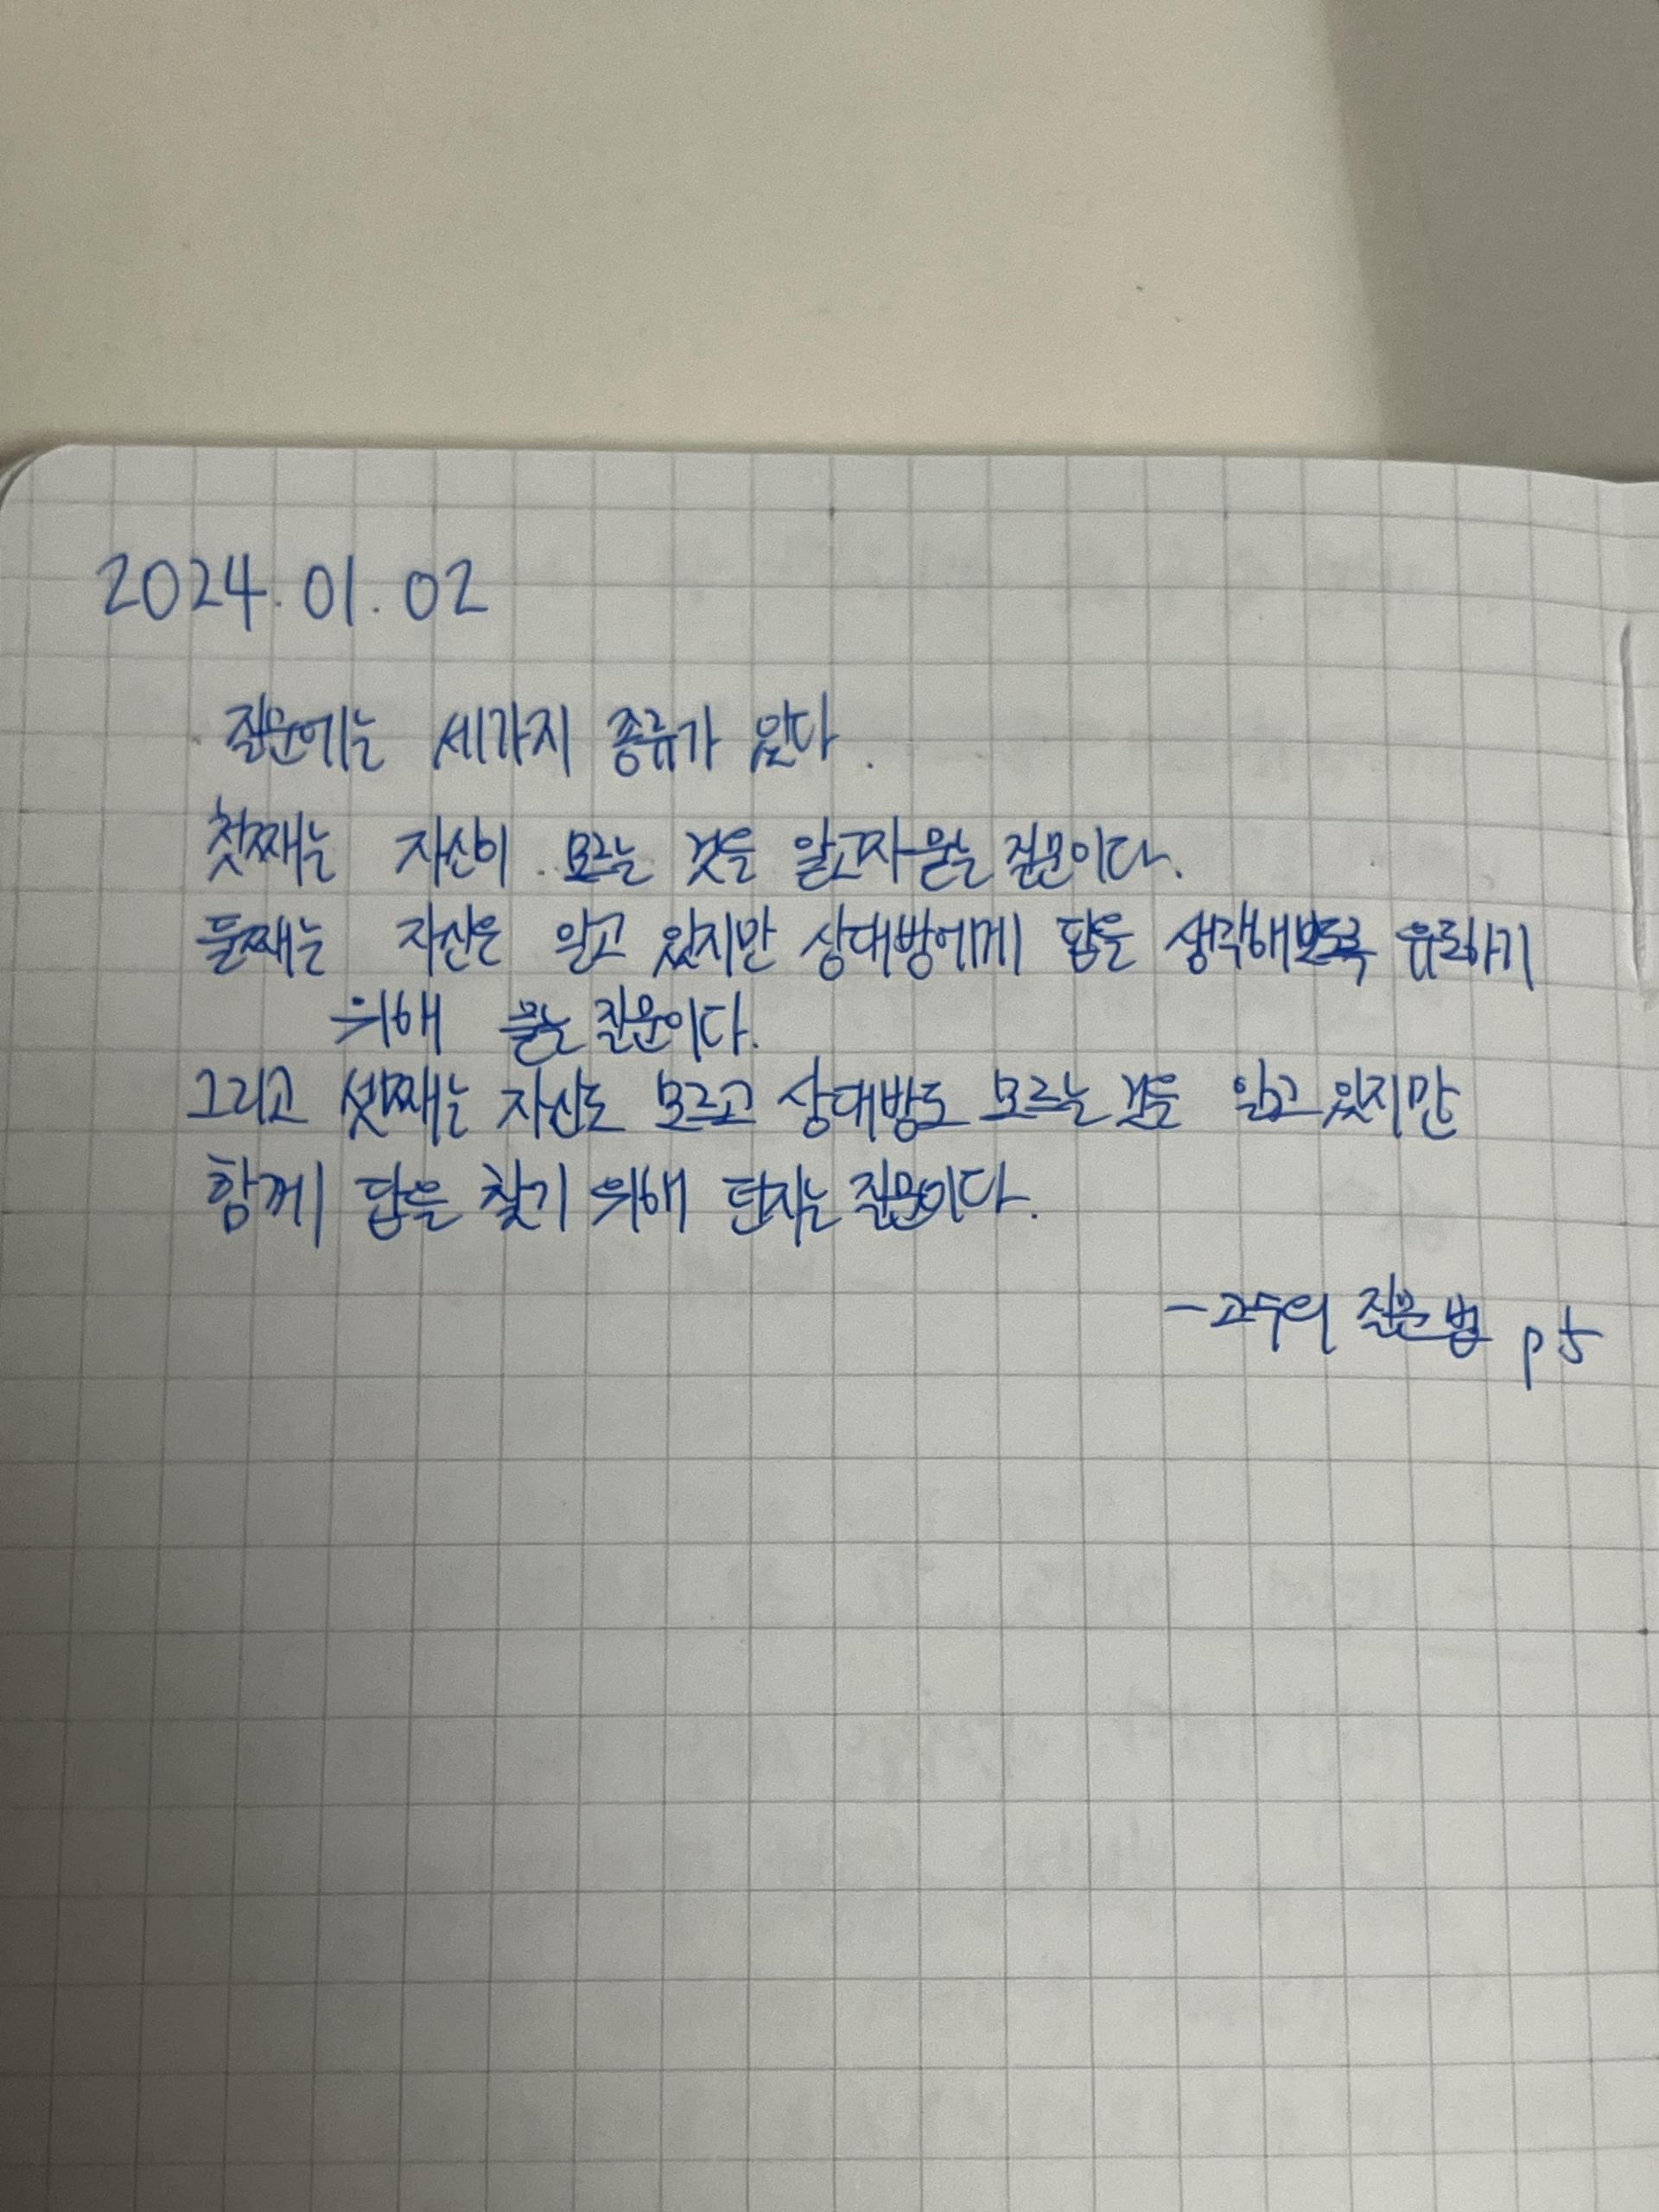 2024.01.02
질문에는 세가지 종류가 있다.
첫째는 자신이 모르는 것을 알고자 묻는 질문이다.
둘째는 자신은 알고 있지만 상대방에게 답을 생각해보도록 유도하기
위해 묻는 질문이다.
그리고 셋째는 자신도 모르고 상대방도 모르는 것을 알고 있지만
함께 답을 찾기 위해 던지는 질문이다.
-고수의 질문법 p5